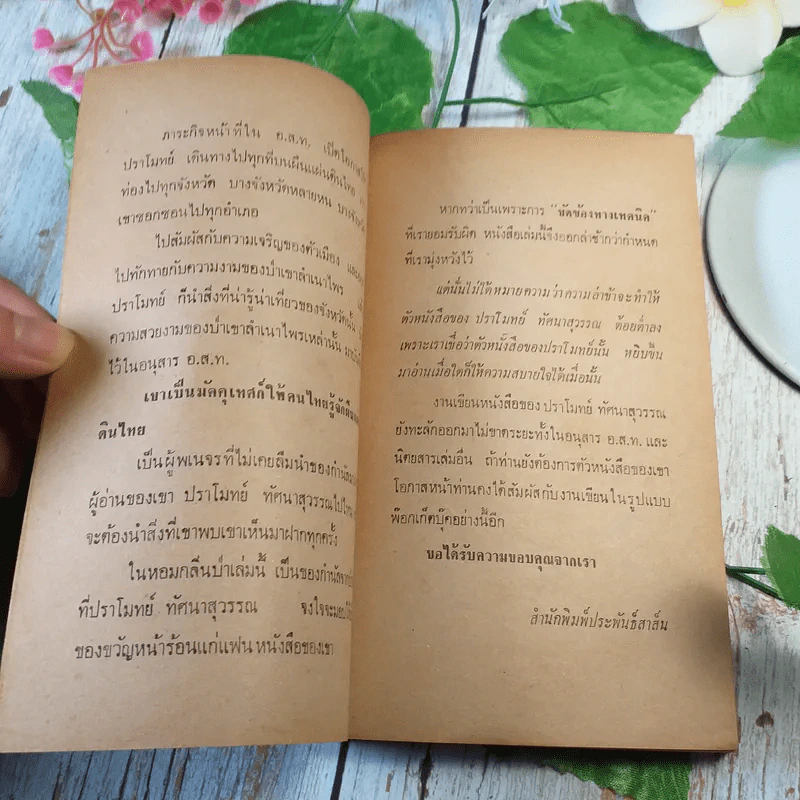 ภาระกิจหน้าที่ใน อ.ส.ท, เปิดโอกาส
ปราโมทย์ เดินทางไปทุกที่บนผืนแผ่นดินไทย
ท่องไปทุกจังหวัด บางจังหวัดหลายหน
เขาซอกซอนไปทุกอำเภอ
ไปสัมผัสกับความเจริญของตัวเมือง
ไปทักทายกับความงามของป่าเขาลำเนาไพร
ปราโมทย์ ก็นำสิ่งที่น่ารู้น่าเที่ยวของจังหวัดนั้น
ความสวยงามของป่าเขาลำเนาไพรเหล่านั้น
ไว้ในอนุสาร อ.ส.ท.
เขาเป็นมัคคุเทศก์ให้คนไทยรู้จัก
ดินไทย
เป็นผู้พเนจรที่ไม่เคยลืมนำของกำนัล
ผู้อ่านของเขา ปราโมทย์ ทัศนาสุวรรณไปไหน
จะต้องนำสิ่งที่เขาพบเขาเห็นมาฝากทุกครั้ง
ในหอมกลิ่นป่าเล่มนี้ เป็นของกำนัล
ที่ปราโมทย์ ทัศนาสุวรรณ จงใจจะมอบ
ของขวัญหน้าร้อนแก่แฟนหนังสือของเขา
หากทว่าเป็นเพราะการ "ขัดข้องทางเทคนิค"
ที่เรายอมรับผิด หนังสือเล่มนี้จึงออกล่าช้ากว่ากำหนด
ที่เรามุ่งหวังไว้
แต่นั่นไม่ได้หมายความว่าความล่าช้าจะทำให้
ตัวหนังสือของ ปราโมทย์ ทัศนาสุวรรณ ด้อยต่ำลง
เพราะเราเชื่อว่าตัวหนังสือของปราโมทย์นั้น หยิบขึ้น
มาอ่านเมื่อใดก็ให้ความสบายใจได้เมื่อนั้น
งานเขียนหนังสือของ ปราโมทย์ ทัศนาสุวรรณ
ยังทะลักออกมาไม่ขาดระยะทั้งในอนุสาร อ.ส.ท. และ
นิตยสารเล่มอื่น ถ้าท่านยังต้องการตัวหนังสือของเขา
โอกาสหน้าท่านคงได้สัมผัสกับงานเขียนในรูปแบบ
พ๊อกเก็ตบุ๊คอย่างนี้อีก
ขอได้รับความขอบคุณจากเรา
สำนักพิมพ์ประพันธ์สาส์น